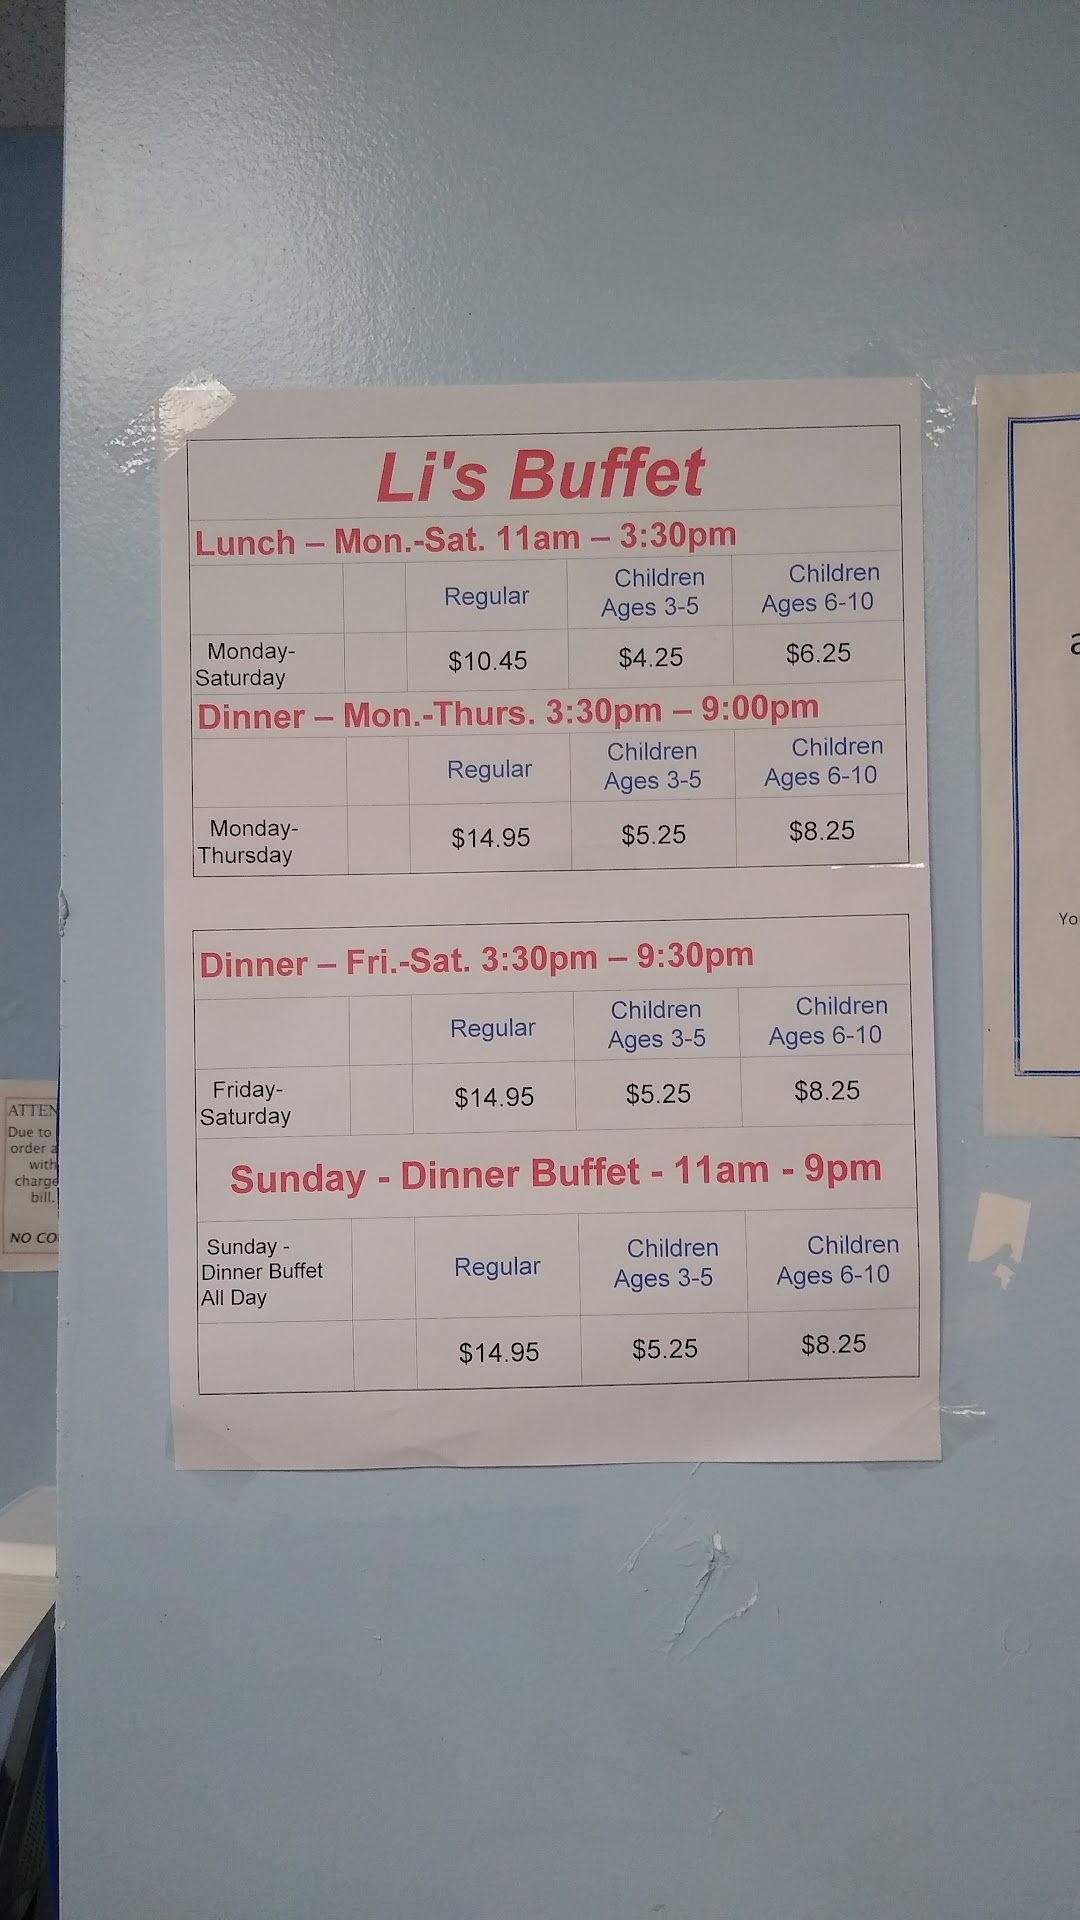 Li's Buffet
Lunch – Mon.-Sat. 11am – 3:30pm
Regular
Children
Ages 3-5
Children
Ages 6-10
Monday-
Saturday
$10.45
$4.25
$6.25
Dinner – Mon.-Thurs. 3:30pm – 9:00pm
Regular
Children
Ages 3-5
Children
Ages 6-10
Monday-
Thursday
$14.95
$5.25
$8.25
Dinner – Fri.-Sat. 3:30pm – 9:30pm
Regular
Children
Ages 3-5
Children
Ages 6-10
Friday-
Saturday
$14.95
$5.25
$8.25
Sunday - Dinner Buffet - 11am - 9pm
Sunday -
Dinner Buffet
All Day
Regular
Children
Ages 3-5
Children
Ages 6-10
$14.95
$5.25
$8.25
Due to
order
with
charge
bill.
NO